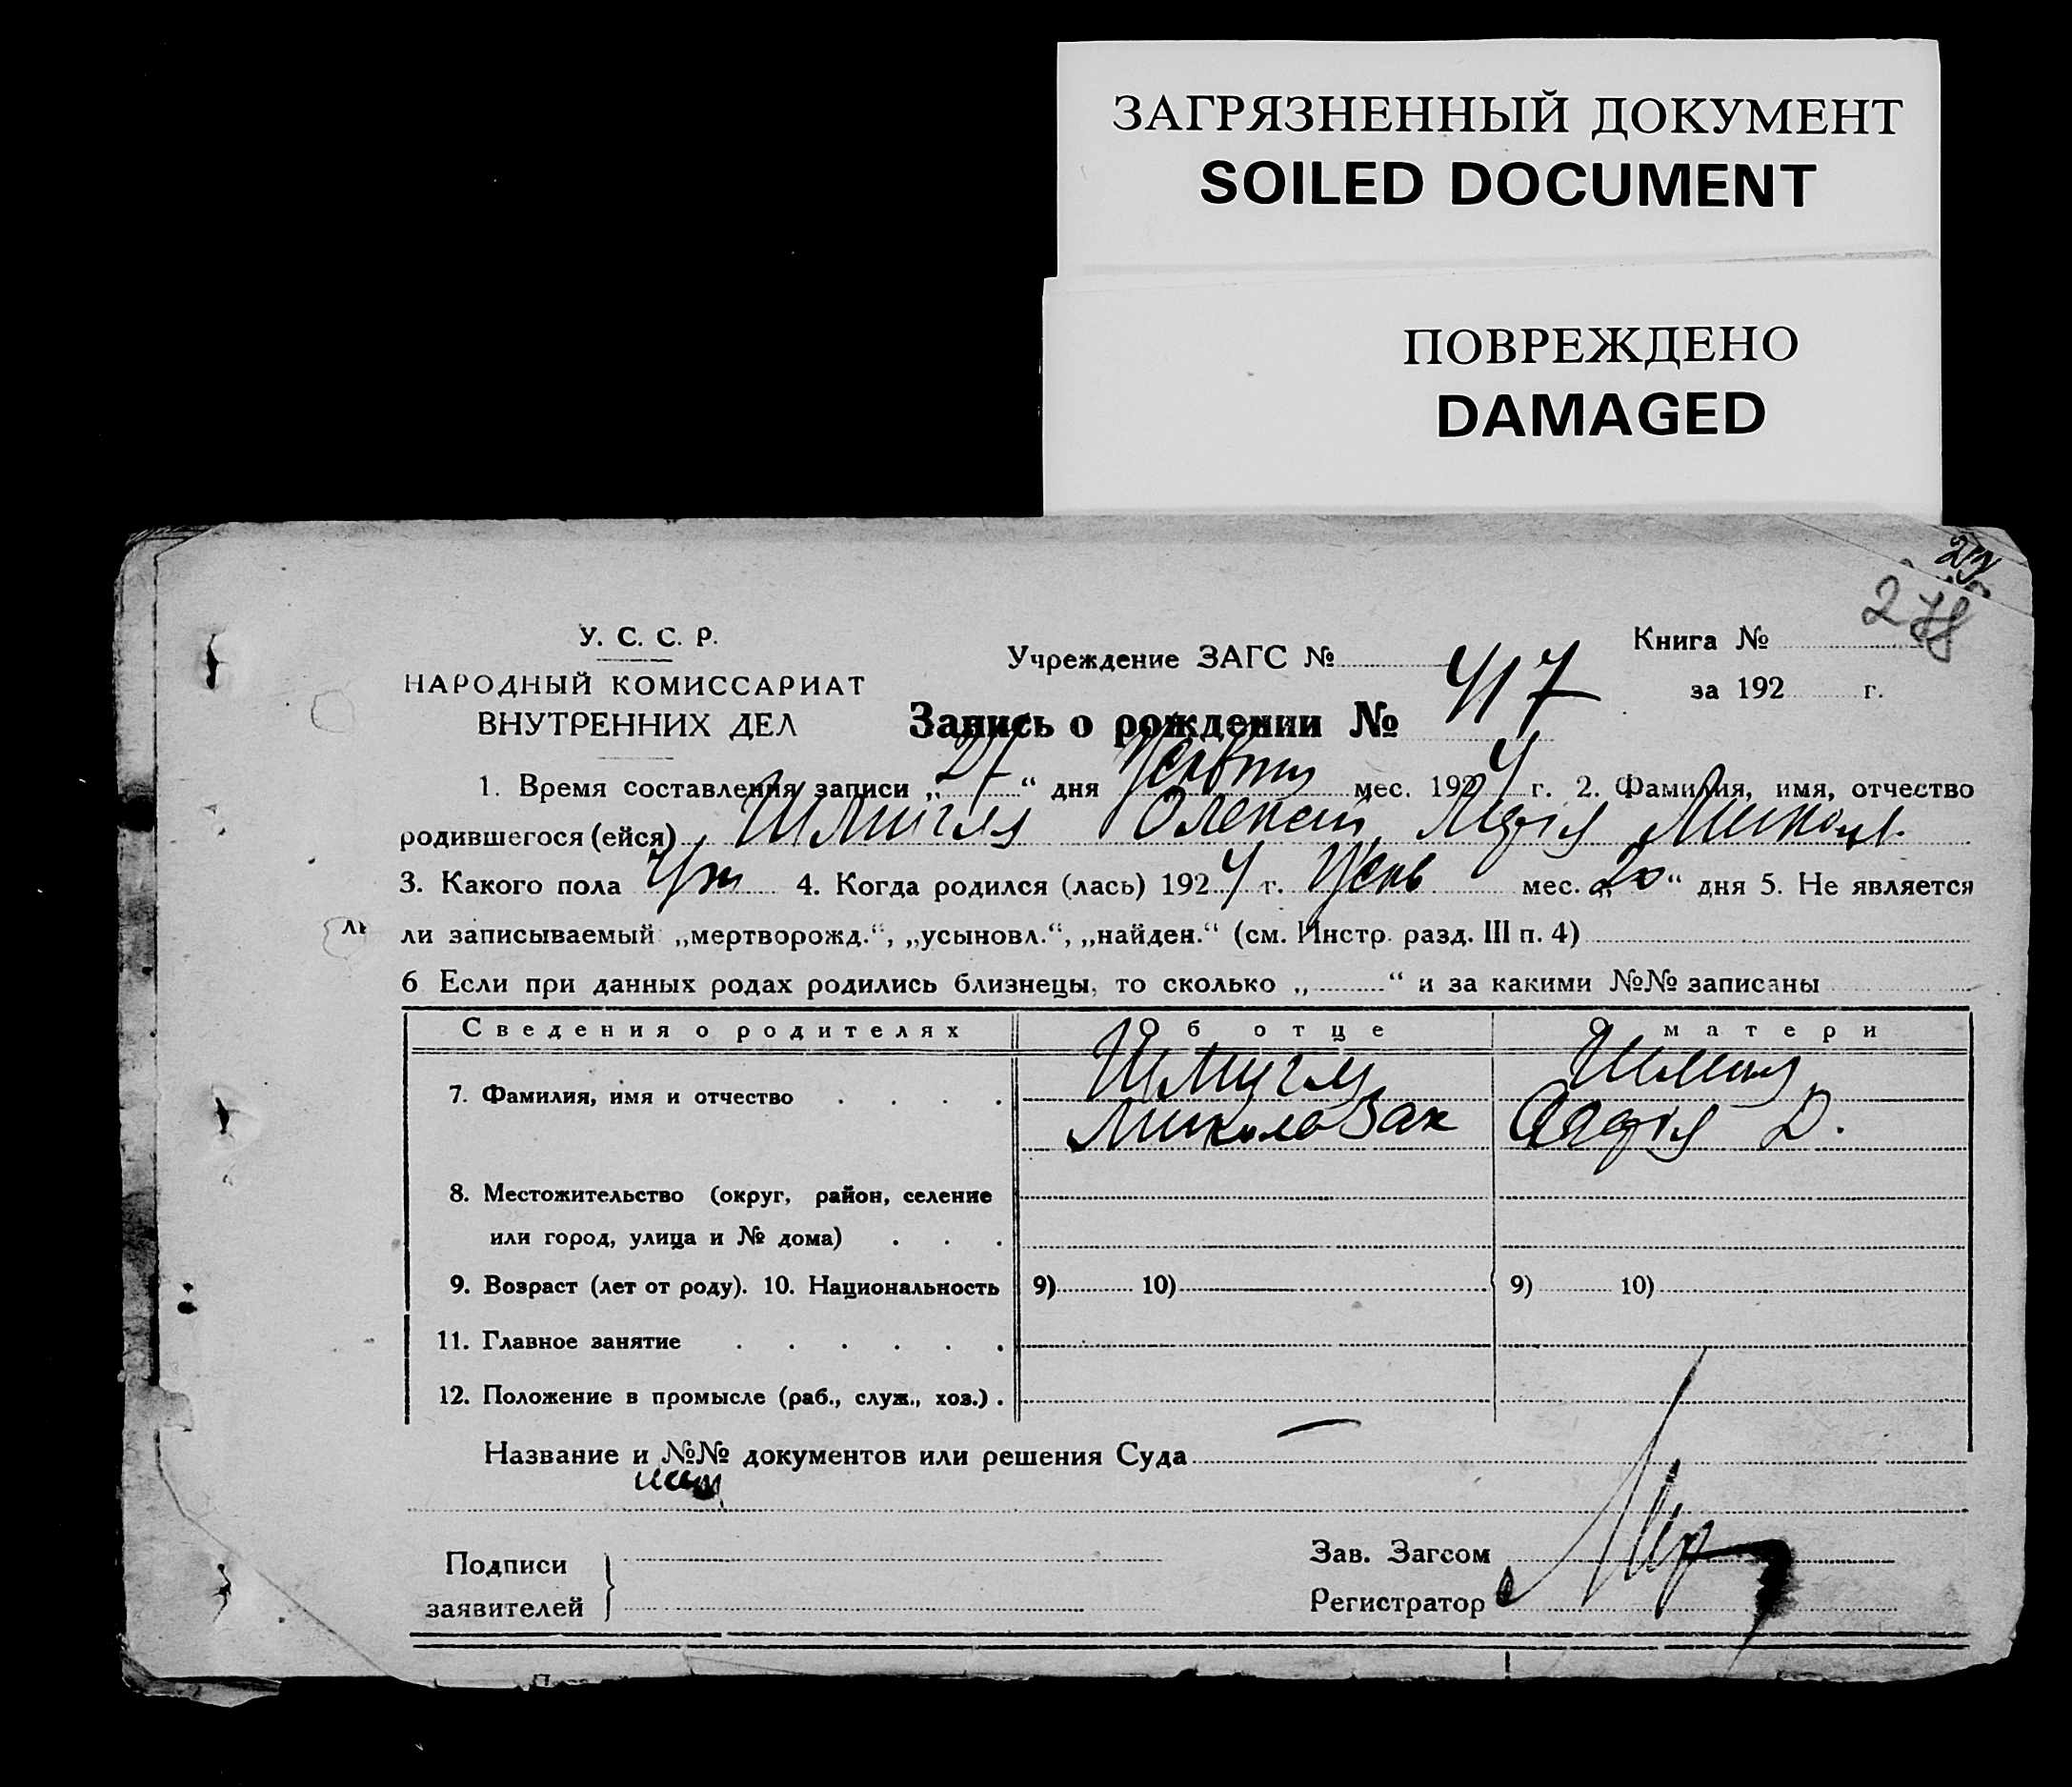 ЗАГРЯЗНЕННЫЙ ДОКУМЕНТ
SOILED DOCUMENT
ПОВРЕЖДЕНО
DAMAGED
278
У. С. С. Р.
НАРОДНЫЙ КОМИССАРИАТ
ВНУТРЕННИХ ДЕЛ
Учреждение ЗАГС №
Книга №
за 192 г.
Запись о рождении № 417
1. Время составления записи „27“ дня Червня мес. 1924 г. 2. Фамилия, имя, отчество
родившегося (ейся) Шмигля Олексій
3. Какого пола 4. Когда родился (лась) 1924 г. мес. „20“ дня 5. Не является
ли записываемый „мертворожд.“, „усыновл.“, „найден.“ (см. Инстр. разд. III п. 4)
6 Если при данных родах родились близнецы, то сколько „ “ и за какими №№ записаны
Сведения о родителях Об отце О матери
7. Фамилия, имя и отчество . . . . Шмигля
Микола Зах Д.
8. Местожительство (округ, район, селение
или город, улица и № дома) . . .
9. Возраст (лет от роду). 10. Национальность 9) 10) 9) 10)
11. Главное занятие . . . . . .
12. Положение в промысле (раб., служ., хоз.) .
Название и №№ документов или решения Суда
Подписи
заявителей
Зав. Загсом
Регистратор